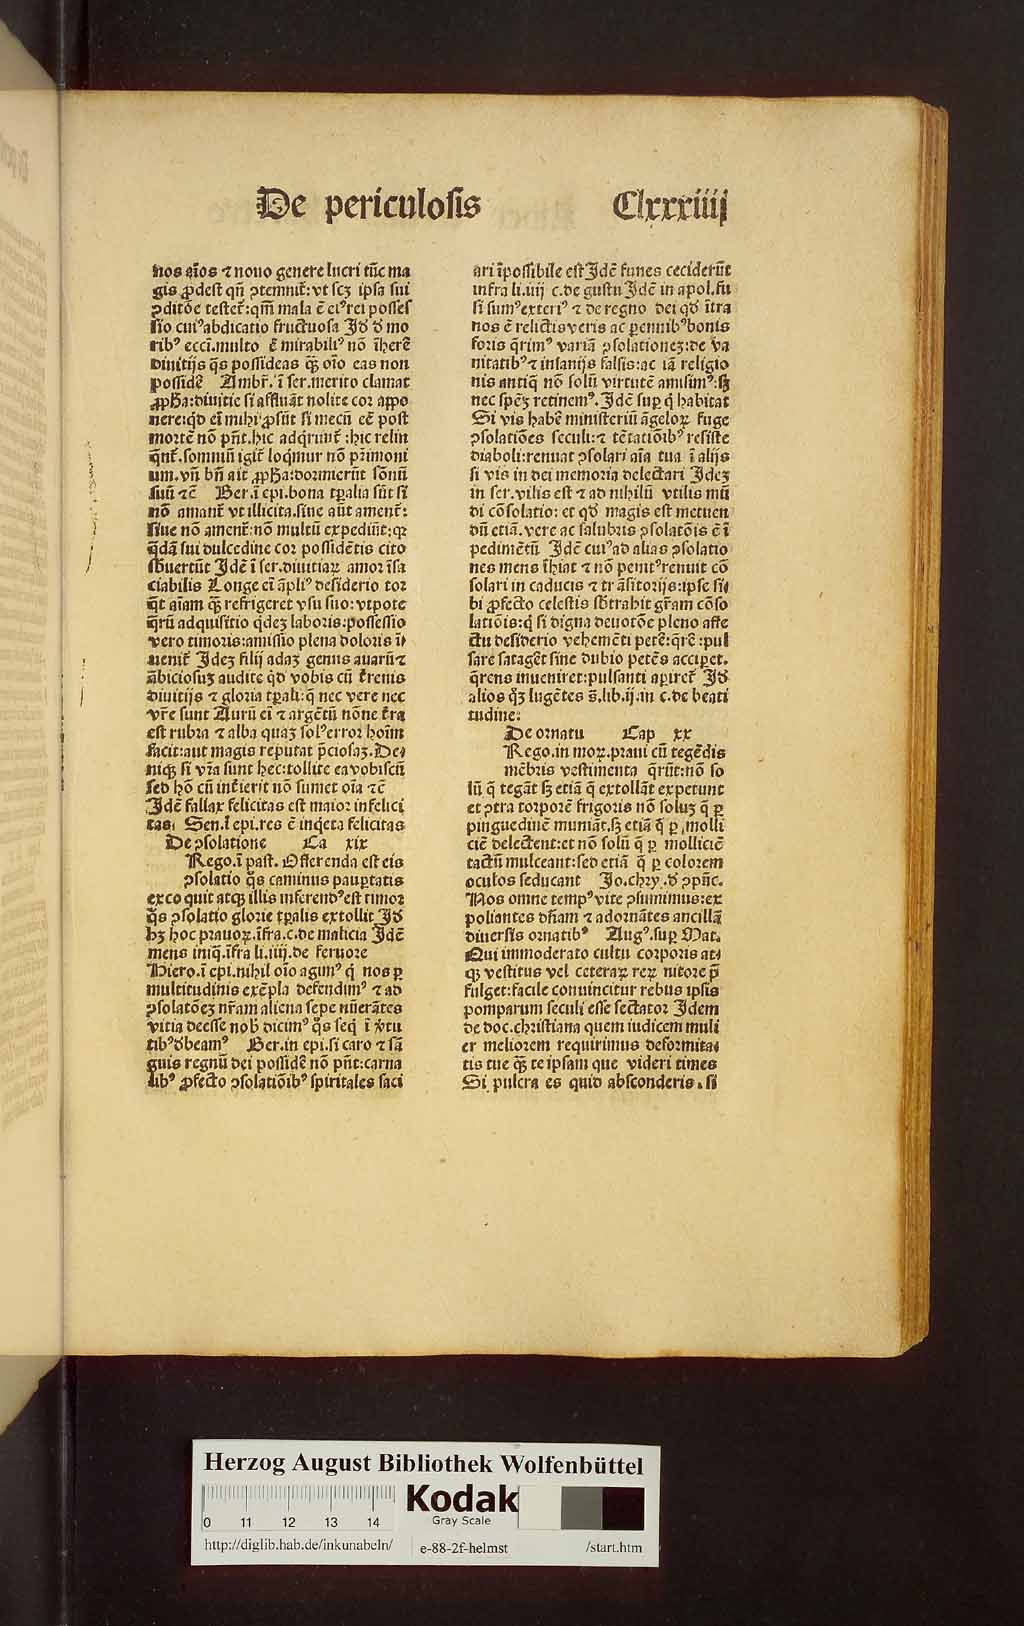 De periculosis Clxxxiiij
nos aĩos ⁊ nouo genere lucri tũc ma
gis ꝓdest qñ ꝯtemnit̃: vt scʒ ipsa sui
ꝑditõe testet̃: qm̃ mala ẽ eiꝰ rei posses
sio cuiꝰ abdicatio fructuosa Jđ đ mo
ribꝰ ecci. multo ẽ mirabiliꝰ nõ ĩherẽ
diuitijs q̃s possideas qꝫ̃ oĩo eas non
possidẽ Ambr̃. ĩ ser. merito clamat
ꝓpħa: diuitie si affluãt nolite cor appo
nere: qđ eĩ mihi ꝓsũt si mecũ eẽ post
mortẽ nõ pñt. hic adqrũnt̃: hic relin
qñt̃. somniũ igit̃ loqmur nõ p̃rimoni
um. vñ bñ ait ꝓpħa: dormierũt sõnũ
suũ ⁊c̃ Ber. ĩ epi. bona tp̃alia sũt si
nõ amant̃ vt illicita. siue aũt ament̃:
siue nõ ament̃: nõ multũ expediũt: qꝛ
q̃dã sui dulcedine cor possidẽtis cito
sb̃uertũt Jdẽ ĩ ser. diuitiaꝝ amor ĩsa
ciabilis Longe eĩ ãpliꝰ desiderio tor
q̃t aĩam qꝫ̃ refrigeret vsu suo: vtpote
q̃rũ adquisitio q̃deʒ laboris: possessio
vero timoris: amissio plena doloris ĩ
uenit̃ Jdeʒ filij adaʒ genus auarũ ⁊
ãbiciosuʒ audite qđ vobis cũ t̃renis
diuitijs ⁊ gloria tp̃ali: q̃ nec vere nec
vr̃e sunt Aurũ eĩ ⁊ argẽtũ nõne t̃ra
est rubra ⁊ alba quaʒ solꝰ error hoĩm
facit: aut magis reputat p̃ciosaʒ. De
niqꝫ si vr̃a sunt hec: tollite ea vobiscũ
sed hõ cũ inťierit nõ sumet oĩa ⁊c̃
Jdẽ fallax felicitas est maior infelici
tas. Sen. ĩ epi. res ẽ inq̃eta felicitas
De ꝯsolatione Ca xix
Rego. ĩ past. Offerenda est eis
ꝯsolatio q̃s caminus paupertatis
excoquit atqꝫ illis inferendꝰ est timor
q̃s ꝯsolatio glorie tp̃alis extollit Jđ
hʒ hoc prauoꝝ. ĩfra. c. de malicia Jdẽ
mens iniq̃. ĩfra li. iiij. de feruore
Hiero. ĩ epi. nihil oĩo agimꝰ q̃ nos ꝑ
multitudinis exẽpla defendimꝰ ⁊ ad
ꝯsolatõeʒ nr̃am aliena sepe nũerãtes
vitia deesse nob̃ dicimꝰ q̃s seq̃ ĩ ṽtu
tibꝰ đbeamꝰ Ber. in epi. si caro ⁊ sã
guis regnũ dei possidẽ nõ pñt: carna
libꝰ ꝓfecto ꝯsolatiõibꝰ spiritales saci
ari ĩpossibile est Jdẽ funes ceciderũt
infra li. iiij c. de gustu Jdẽ in apol. fu
si sumꝰ exteriꝰ ⁊ de regno dei qđ ĩtra
nos ẽ relictis veris ac ꝑennibꝰ bonis
foris q̃rimꝰ variã ꝯsolationeʒ: de va
nitatibꝰ ⁊ insanijs falsis: ac iã religio
nis antiq̃ nõ solũ virtutẽ amisimꝰ: sʒ
nec speʒ retinemꝰ. Jdẽ suꝑ q̃ habitat
Si vis habẽ ministeriũ ãgeloꝝ fuge
ꝯsolatiões seculi: ⁊ tẽtatiõibꝰ resiste
diaboli: renuat ꝯsolari aĩa tua ĩ alijs
si vis in dei memoria delectari Jdeʒ
in ser. vilis est ⁊ ad nihilũ vtilis mũ
di cõsolatio: et qđ magis est metuen
dũ etiã. vere ac salubris ꝯsolatõis ẽ ĩ
pedimẽtũ Jdẽ cuiꝰ ad alias ꝯsolatio
nes mens ĩhiat ⁊ nõ penitꝰ renuit cõ
solari in caducis ⁊ trãsitorijs: ipse si
bi ꝓfecto celestis sb̃trahit gr̃am cõso
latiõis: q̃ si digna deuotõe pleno affe
ctu desiderio vehemẽti petẽ: q̃rẽ: pul
sare satagẽt sine dubio petẽs acciꝑet.
q̃rens inueniret: pulsanti aꝑiret̃ Jđ
alios qꝫ lugẽtes s̃. lib. ij. in c. de beati
tudine:
De ornatu Cap xx
Rego. in moꝝ. praui cũ tegẽdis
mẽbris vestimenta q̃rũt: nõ so
lũ q̃ tegãt sʒ etiã q̃ extollãt expetunt
et ꝯtra torporẽ frigoris nõ soluʒ q̃ ꝑ
pinguedinẽ muniãt. sʒ etiã q̃ ꝑ molli
ciẽ delectent: et nõ solũ q̃ ꝑ molliciẽ
tactũ mulceant: sed etiã q̃ ꝑ colorem
oculos seducant Jo. chry. đ ꝯpũc.
Nos omne tempꝰ vite ꝯsumimus: ex
poliantes dñam ⁊ adornãtes ancillã
diuersis ornatibꝰ Augꝰ. suꝑ Mat.
Qui immoderato cultu corporis at
qꝫ vestitus vel ceteraꝝ reꝝ nitore p̃
fulget: facile conuincitur rebus ipsis
pomparum seculi esse sectator Jdem
de doc. christiana quem iudicem muli
er meliorem requirimus deformita
tis tue qꝫ̃ te ipsam que videri times
Si pulcra es quid absconderis. si
Herzog August Bibliothek Wolfenbüttel
0 11 12 13 14
Kodak
Gray Scale
http://diglib.hab.de/inkunabeln/ e-88-2f-helmst /start.htm